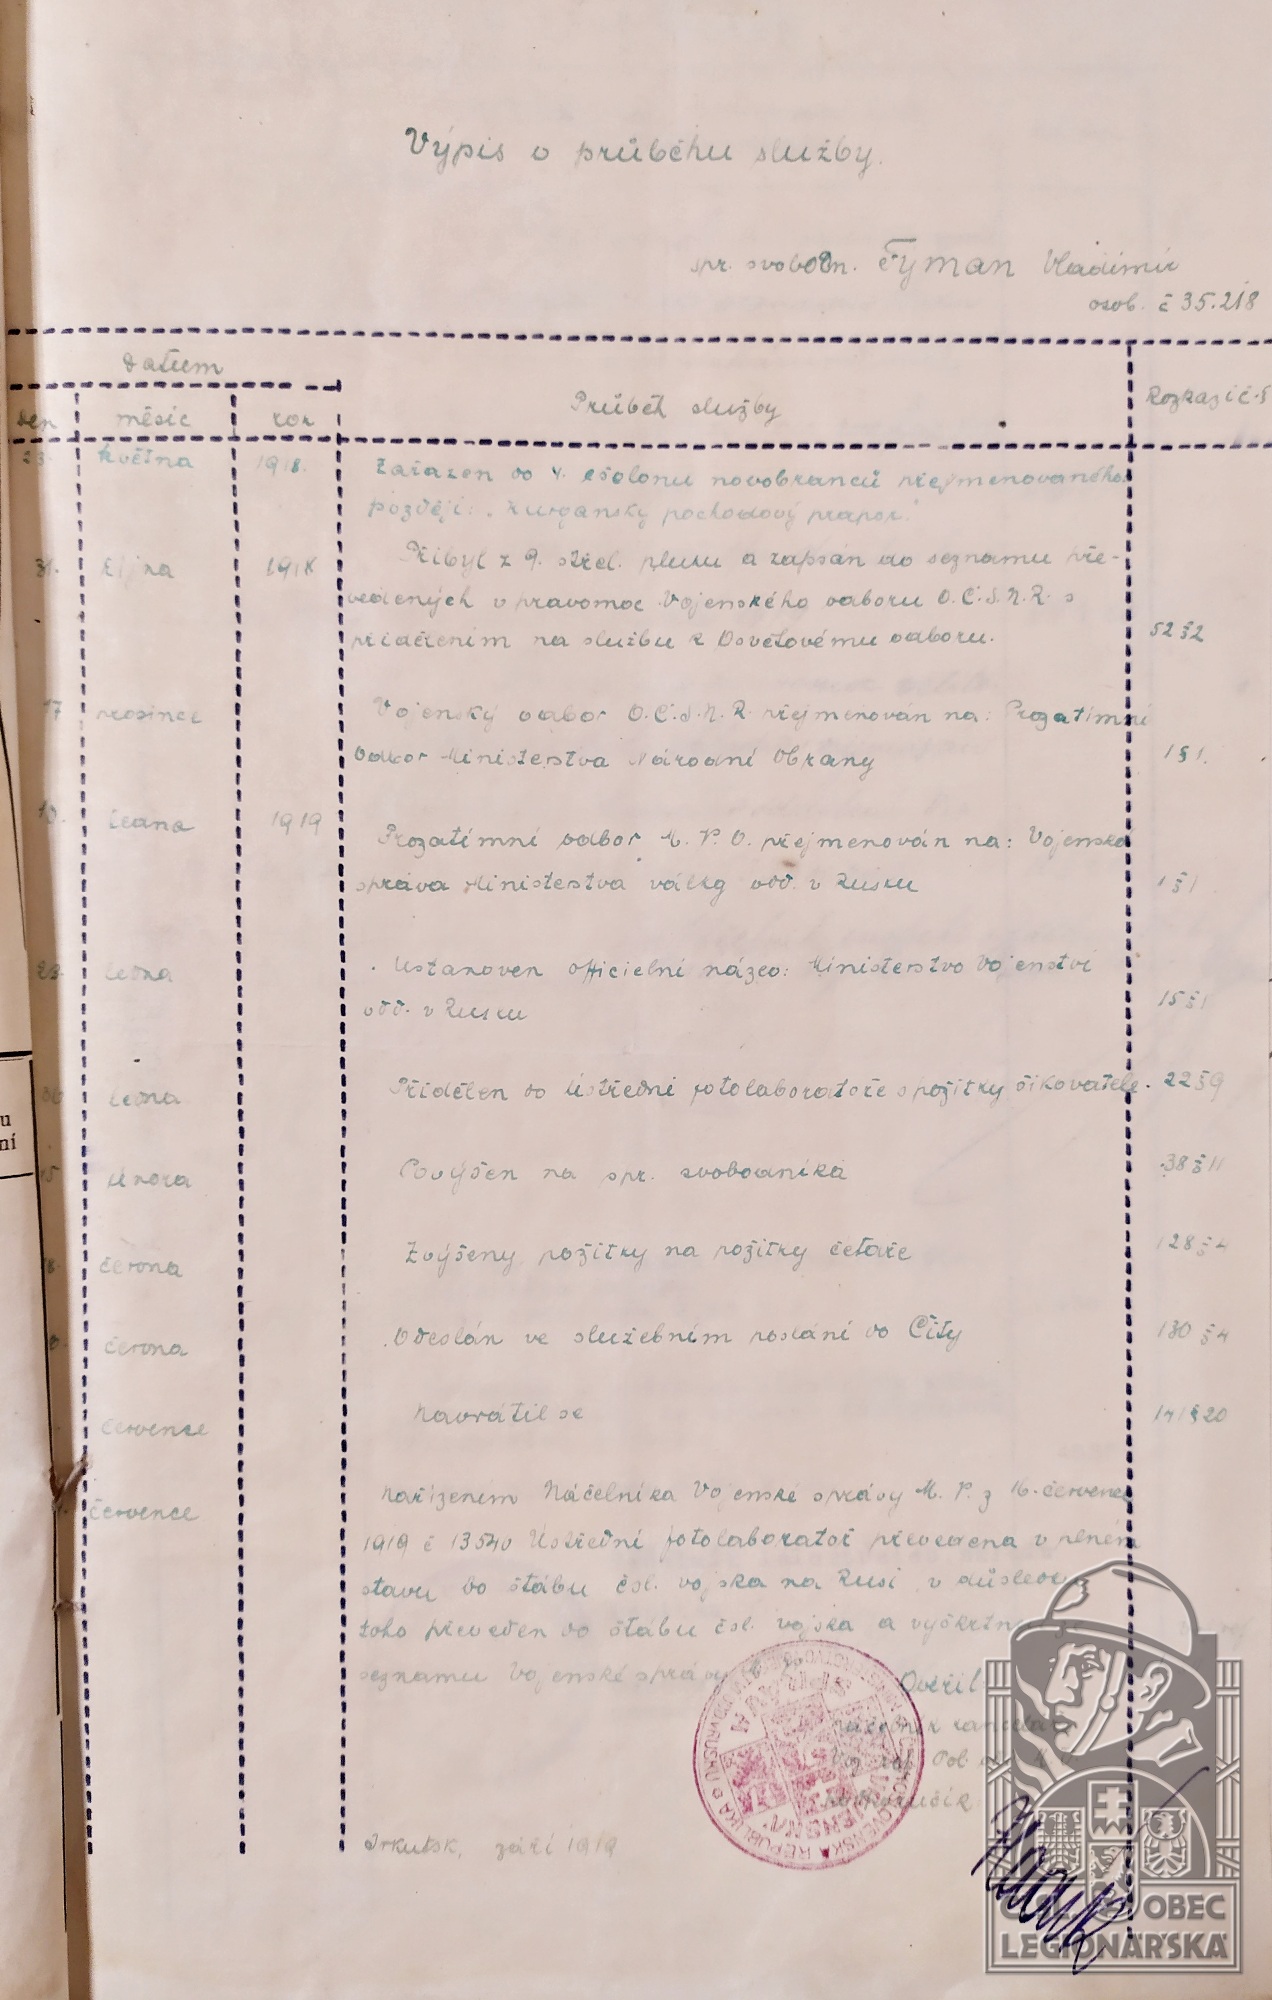 Výpis o průběhu služby.
spr. svobodn. Fyman Vladimír
osob. č 35.218
datum
den měsíc rok Průběh služby Rozkaz č. §
23. května 1918. Zařazen do 4. ešolonu novobranců přejmenovaného
později: „Kurganský pochodový prapor."
31. října 1918 Přibyl z 9. střel. pluku a zapsán do seznamu pře-
vedených v pravomoc Vojenského odboru O.Č.S.N.R. s
přidělením na službu k Osvětovému odboru. 52 § 2
17 prosince Vojenský odbor O.Č.S.N.R. přejmenován na: Prozatimní
Odbor Ministerstva Národní Obrany 1 § 1.
ledna 1919 Prozatímní odbor M. N. O. přejmenován na: Vojenská
správa Ministerstva války odd. v Rusku 1 § 1
23. ledna Ustanoven officielní název: Ministerstvo Vojenství
odd. v Rusku 15 § 1
30 ledna Přidělen do Ústřední fotolaboratoře s požitky šikovatele. 22 § 9
15 února Povýšen na spr. svobodníka 38 § 11
8. června Zvýšeny požitky na požitky četaře 128 § 4
června Odeslán ve služebním poslání do Čity 130 § 4
července Navrátil se 141 § 20
července Nařízením Náčelníka Vojenské správy M. V. z 16. července
1919 č 13540 Ústřední fotolaboratoř převedena v plném
stavu do štábu čsl. vojska na Rusi, v důsledku
toho převeden do štábu čsl. vojska a
seznamu Vojenské správy
Ověřil
kanceláře
Irkutsk, září 1919
VOJENSKÁ SPRÁVA
REPUBLIKA
ČSL. OBEC
LEGIONÁŘSKÁ
u
ní